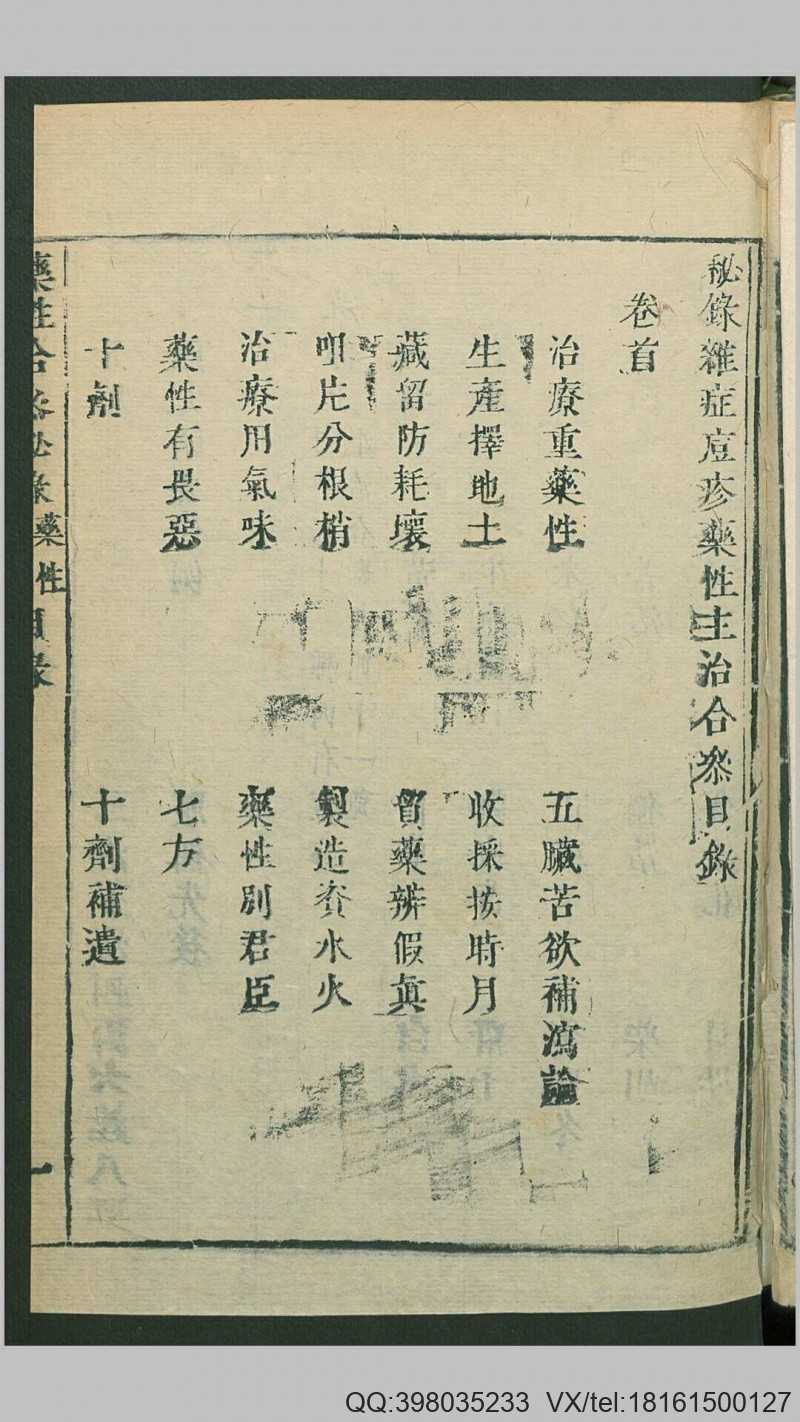 秘錄雜症痘疹藥性主治合參目錄
卷首
治療重藥性　五臟苦欲補瀉論
生產擇地土　收採按時月
藏留防耗壞　貿藥辨假真
咀片分根梢　製造資水火
治療用氣味　藥性別君臣
藥性有畏惡　七方
十劑　十劑補遺
藥性合參秘錄 藥性目錄 一
QQ:398035233 VX/tel:18161500127